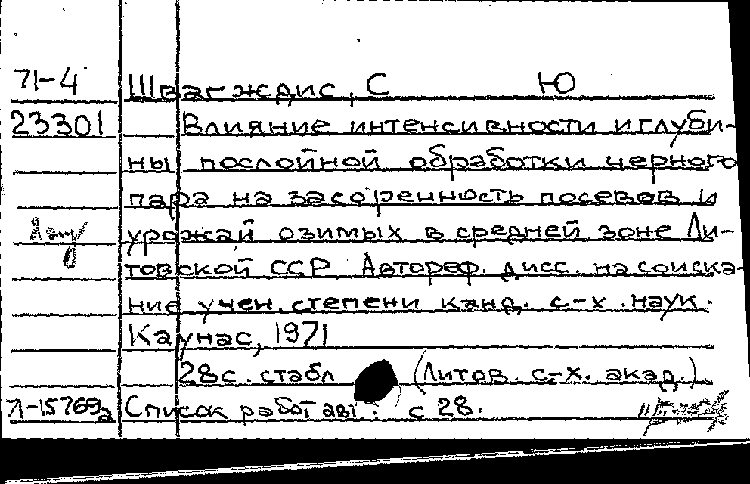 71-4 Швагждис, С Ю
23301 Влияние интенсивности и глуби-
ны послойной обработки черного
пара на засоренность посевов и
урожай озимых в средней зоне Ли-
товской ССР Автореф. дисс. на соиска-
ние учен. степени канд. с-х. наук.
Каунас, 1971
28с. с табл (Литов. с-х. акад.)
71-15769а Список работ авт: с 28.